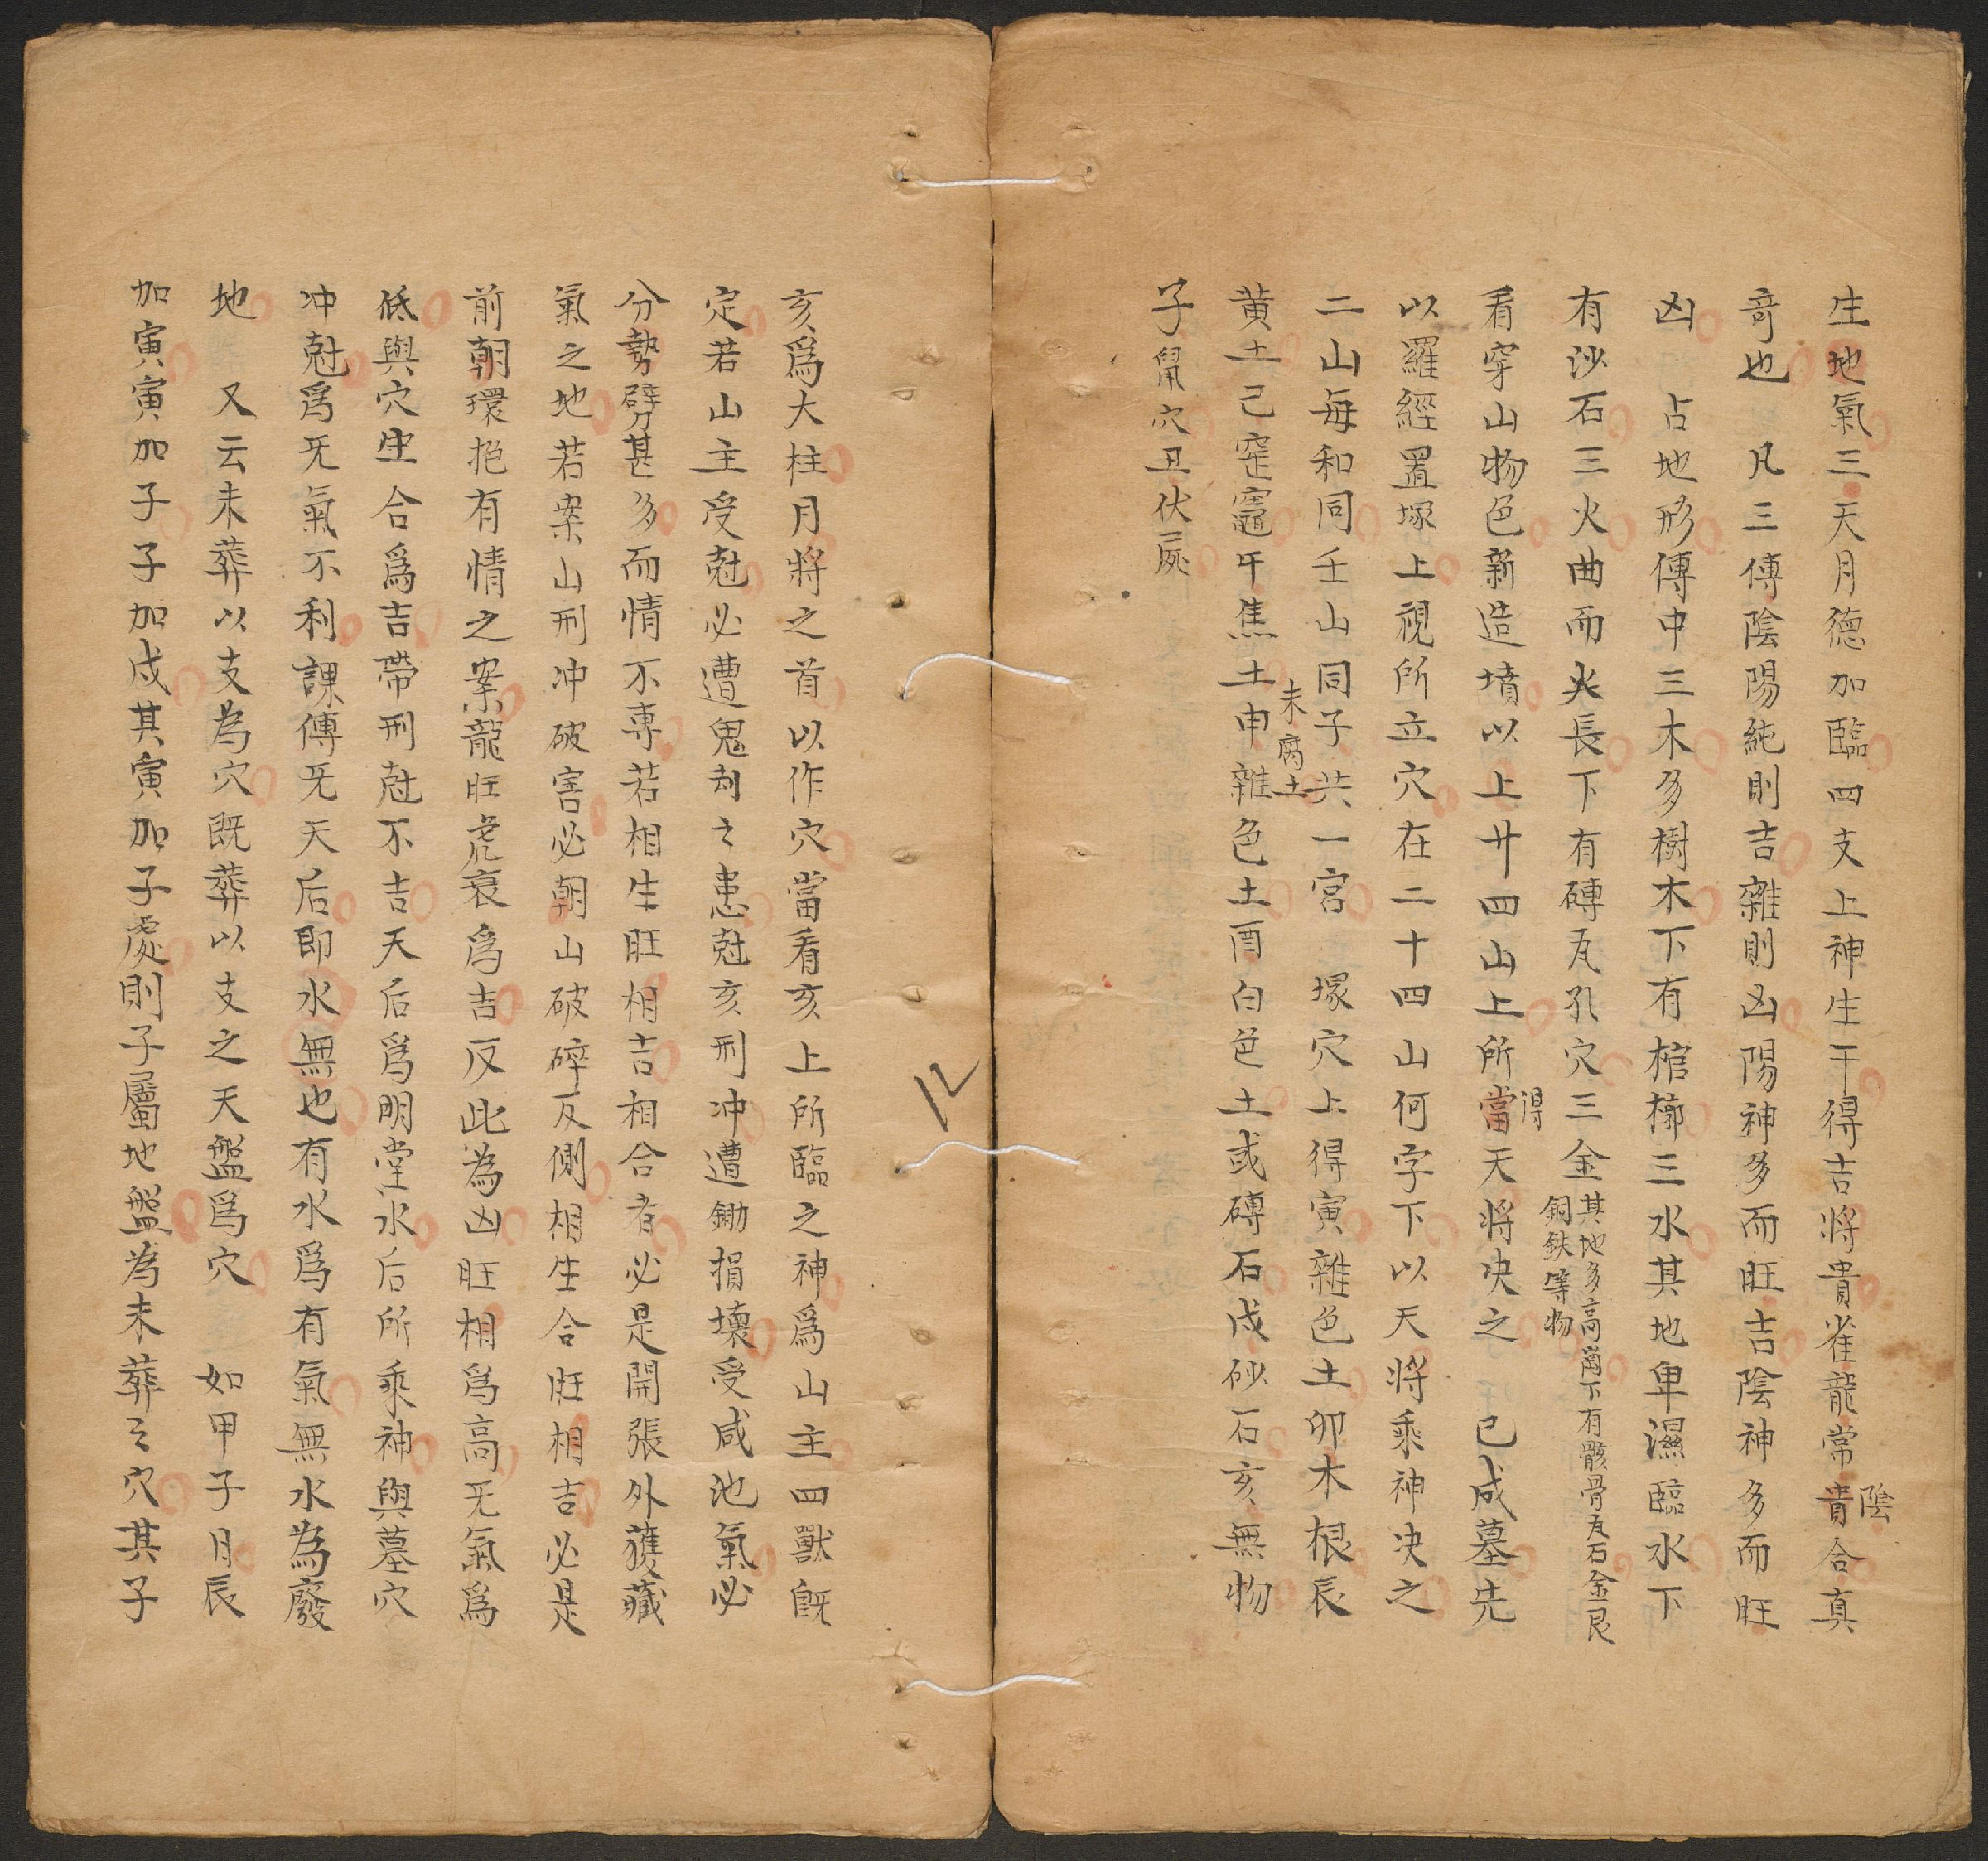 生地氣三天月德加臨四支上神生干得吉將貴雀龍常貴合真
陰
竒也　凡三傳陰陽純則吉雜則凶陽神多而旺吉陰神多而旺
凶　占地形傳中三木多樹木下有棺槨三水其地卑濕臨水下
有沙石三火曲而火長下有磚瓦孔穴三金
其地多高崗下有骸骨瓦石金艮
銅鉄等物
看穿山物色新造墳以上廿四山上所當天将决之　已成墓先
得
以羅經置塚上視所立穴在二十四山何字下以天將乘神决之
二山每和同壬山同子共一宮　塚穴上得寅雜色土卯木根辰
未腐土
黄土己窰竈午焦土申雜色土酉白色土或磚石戌砂石亥無物
子鼠穴丑伏屍
亥爲大柱月將之首以作穴當看亥上所臨之神爲山主四獸既
定若山主受尅必遭鬼刦之患尅亥刑冲遭鋤損壞受咸池氣必
分勢劈分甚多而情不専若相生旺相吉相合者必是開張外獲藏
氣之地若案山刑冲破害必朝山破碎反側相生合旺相吉必是
前朝環抱有情之案龍旺虎衰爲吉反此為凶旺相爲高旡氣爲
低與穴生合爲吉帶刑尅不吉天后爲明堂水后所乘神與墓穴
冲尅爲旡氣不利課傳旡天后即水無也有水爲有氣無水為廢
地　又云未葬以支為穴既葬以支之天盤爲穴　如甲子月辰
加寅寅加子子加戌其寅加子處則子屬地盤為未葬之穴其子